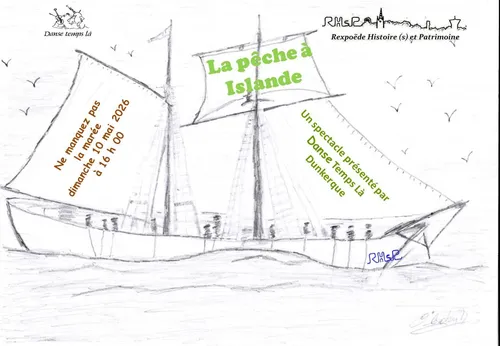 Danse temps là
RHsP
Rexpoëde Histoire (s) et Patrimoine
La pêche à
Islande
Ne manquez pas
la marée
dimanche 10 mai 2026
à 16 h 00
Un spectacle présenté par
Danse Temps Là
Dunkerque
RHsP